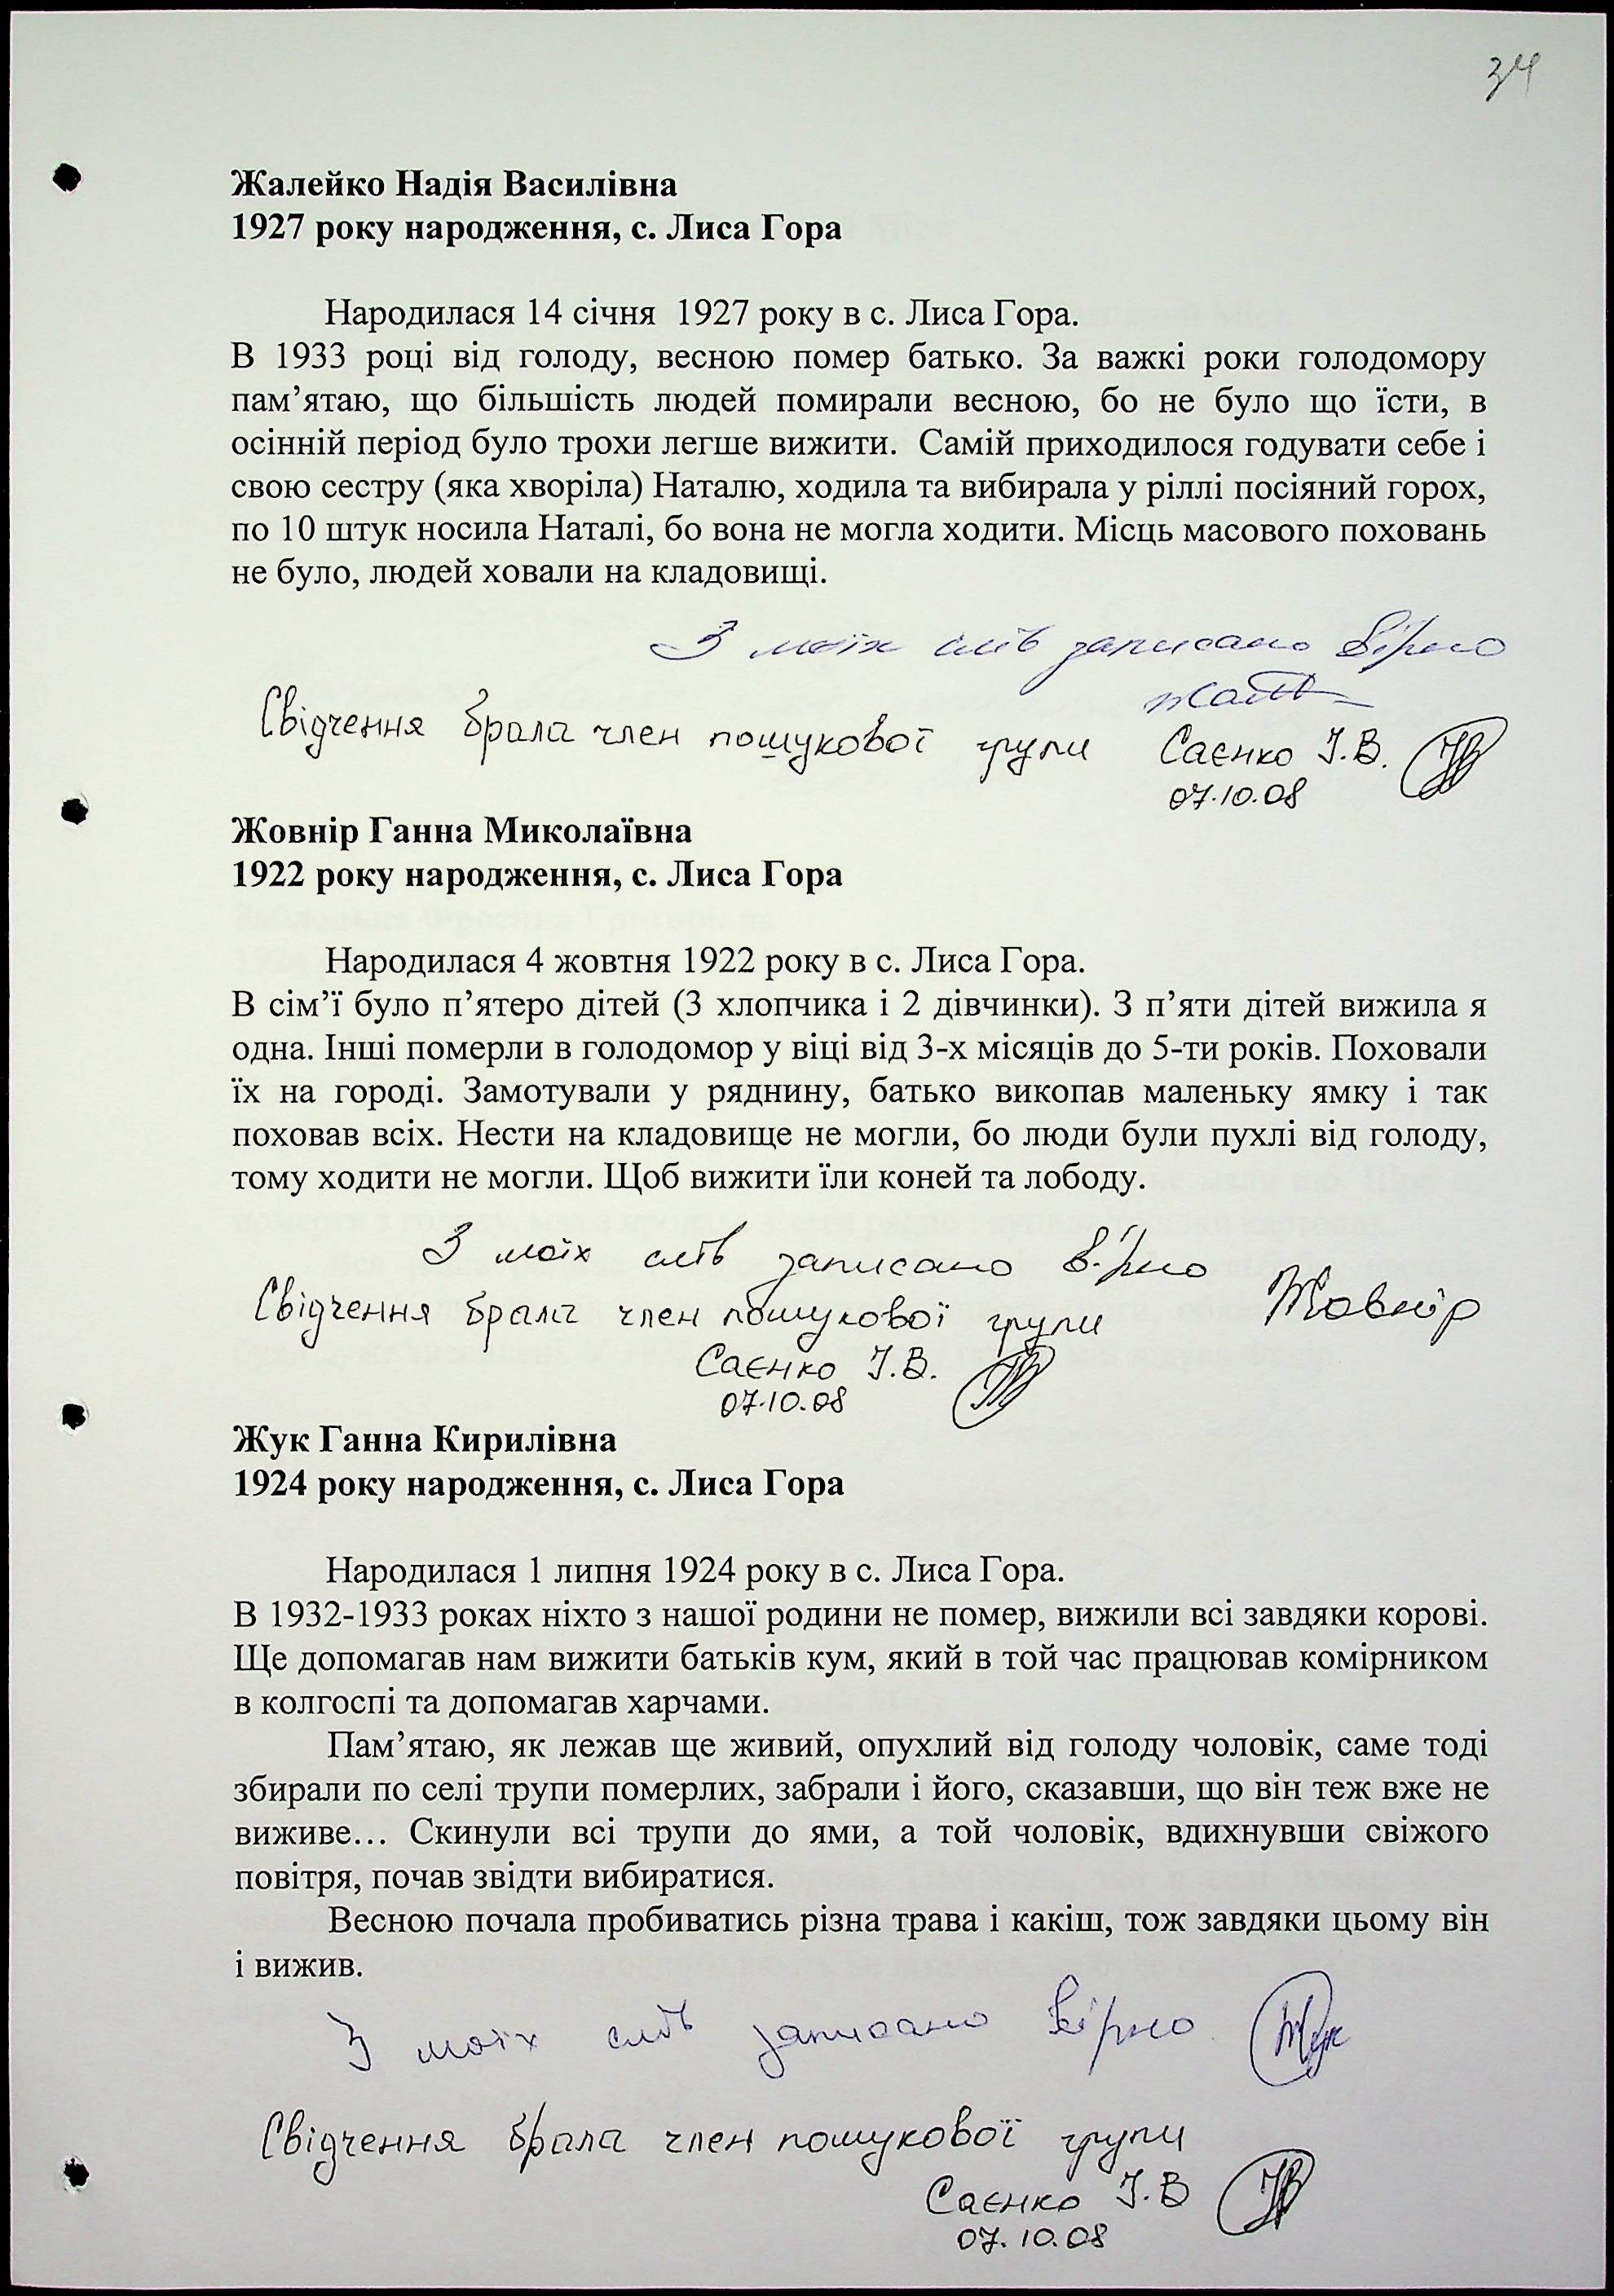 34
Жалейко Надія Василівна
1927 року народження, с. Лиса Гора
Народилася 14 січня 1927 року в с. Лиса Гора.
В 1933 році від голоду, весною помер батько. За важкі роки голодомору
пам’ятаю, що більшість людей помирали весною, бо не було що їсти, в
осінній період було трохи легше вижити. Самій приходилося годувати себе і
свою сестру (яка хворіла) Наталю, ходила та вибирала у ріллі посіяний горох,
по 10 штук носила Наталі, бо вона не могла ходити. Місць масового поховань
не було, людей ховали на кладовищі.
З моїх слів записано вірно
Свідчення брала член пошукової групи Саєнко І.В.
07.10.08
Жовнір Ганна Миколаївна
1922 року народження, с. Лиса Гора
Народилася 4 жовтня 1922 року в с. Лиса Гора.
В сім’ї було п’ятеро дітей (3 хлопчика і 2 дівчинки). З п’яти дітей вижила я
одна. Інші померли в голодомор у віці від 3-х місяців до 5-ти років. Поховали
їх на городі. Замотували у ряднину, батько викопав маленьку ямку і так
поховав всіх. Нести на кладовище не могли, бо люди були пухлі від голоду,
тому ходити не могли. Щоб вижити їли коней та лободу.
З моїх слів записано вірно Жовнір
Свідчення брала член пошукової групи
Саєнко І.В.
07.10.08
Жук Ганна Кирилівна
1924 року народження, с. Лиса Гора
Народилася 1 липня 1924 року в с. Лиса Гора.
В 1932-1933 роках ніхто з нашої родини не помер, вижили всі завдяки корові.
Ще допомагав нам вижити батьків кум, який в той час працював комірником
в колгоспі та допомагав харчами.
Пам’ятаю, як лежав ще живий, опухлий від голоду чоловік, саме тоді
збирали по селі трупи померлих, забрали і його, сказавши, що він теж вже не
виживе… Скинули всі трупи до ями, а той чоловік, вдихнувши свіжого
повітря, почав звідти вибиратися.
Весною почала пробиватись різна трава і какіш, тож завдяки цьому він
і вижив.
З моїх слів записано вірно Жук
Свідчення брала член пошукової групи
Саєнко І.В
07.10.08